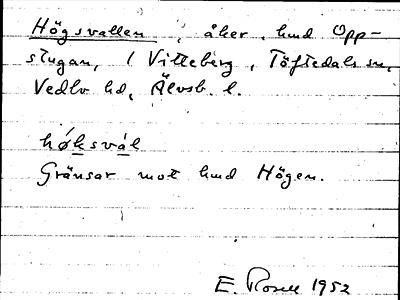 Högsvallen, åker, hmd Opp-
stugan, 1 Vitteberg, Töftedals sn,
Vedbo hd, Älvsb. l.
høksvál
Gränsar mot hmd Högen.
E. Rosell 1952